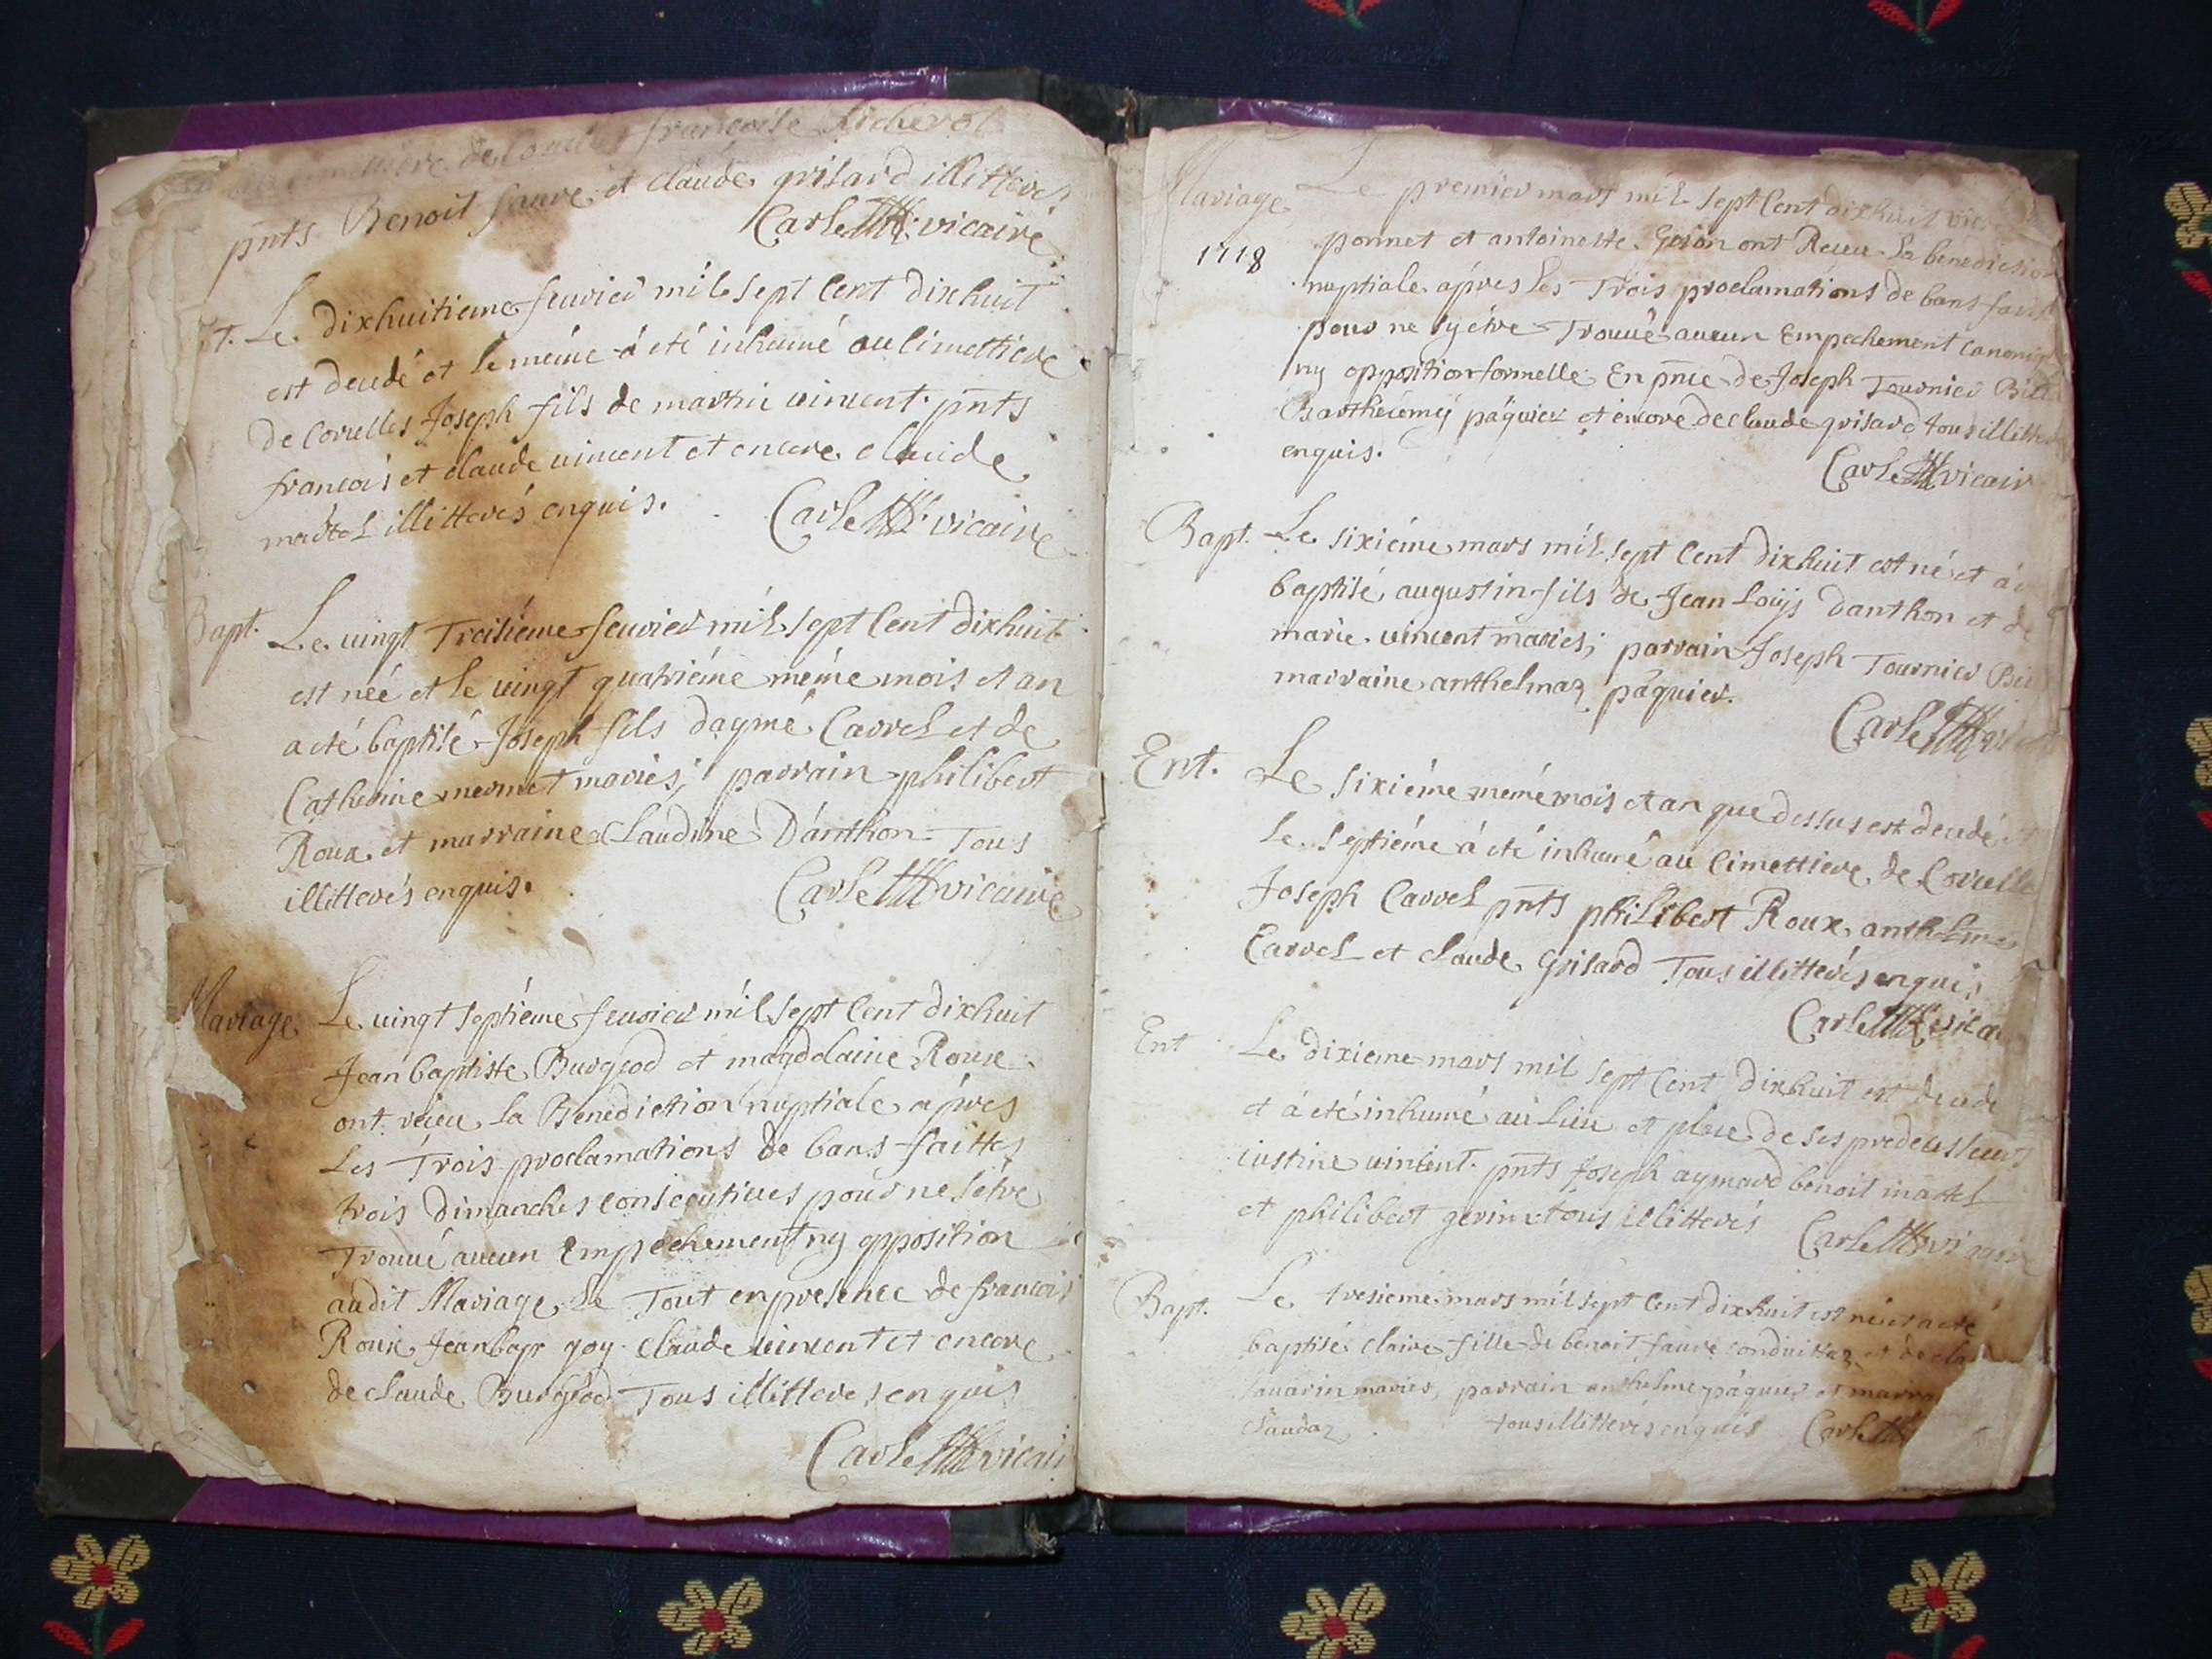 françoise Licherol
pnts Benoit faure et claude grisard illitterés
Carle vicaire
Le dixhuitieme feuvier mil sept Cent dixhuit
est decedé et le méme á eté inhumé au Cimettiere
de Corcelles Joseph fils de martin vincent. pnts
francois et claude vincent et encore claude
martel illitterés enquis.
Carle vicaire
Bapt.
Le vingt Troisiéme feuvier mil sept Cent dixhuit
est neé et le vingt quatriéme méme mois et an
a eté baptisé Joseph fils daymé Carrel et de
Catherine mermet mariés; parrain philibert
Roux et marraine Claudine D'anthon Tous
illitterés enquis.
Carle vicaire
Mariage
Le vingt septiéme feuvier mil sept Cent dixhuit
Jean baptiste Burgeod et magdelaine Roux
ont receu la Benediction nuptiale aprés
Les Trois proclamations de bans faittes
trois dimanches consecutives pour ne sétre
Trouvé aucun Empechement ny opposition
audit Mariage, Le Tout en presence de francois
Roux Jean bapt goy claude vincent et encore
de claude Burgeod Tous illitterés enquis
Carle vicai
Mariage
1718
Le premier mars mil sept Cent dixhuit
ponnet et antoinette ont Receu la benediction
nuptiale aprés les Trois proclamations de bans
pour ne sy étre Trouvé aucun Empechement
ny opposition formelle En pnce de Joseph Tournier
Barthelemy páquier et encore de claude grisard tous
enquis.
Carle vicair
Bapt.
Le sixiéme mars mil sept Cent dixhuit est né et á
baptisé augustin fils de Jean Loüys Danthon et de
marie vincent mariés; parrain Joseph Tournier
marraine anthelmaz páquier.
Carle
Ent.
Le sixiéme méme mois et an que dessus est decedé
Le septiéme á eté inhumé au Cimettiere de Corcelle
Joseph Carrel pnts philibert Roux, anthelme
Carrel et claude grisard Tous illitterés enquis
Carle
Ent
Le dixieme mars mil sept Cent dixhuit est decedé
et á eté inhumé au Lieu et place de ses predecesseurs
iustine vincent. pnts Joseph aymard benoit martel
et philibert gerin tous illitterés
Carle
Bapt.
Le tresieme mars mil sept Cent dixhuit est née et a eté
baptisé claire fille de benoit faure conduittaz et de
savarin mariés, parrain anthelme páquier et
Claudaz tous illitterés enquis
Carle